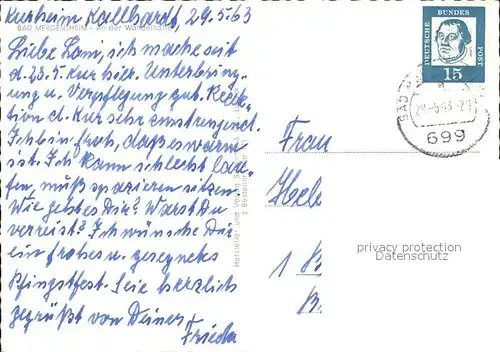 Kurheim Kallhardt, 29.5.63
BAD MERGENTHEIM - An der Wandelhalle
Liebe Loni, ich mache seit
d. 23.5 Kur hier. Unterbring-
ung u. Verpflegung gut. Reak-
tion d. Kur sehr anstrengend.
Ich bin froh, daß es warm
ist. Ich kann schlecht lau-
fen, muß spazieren sitzen.
Wie geht es Dir? Warst Du
verreist? Ich wünsche Dir
ein frohes u. gesegnetes
Pfingstfest. Sei herzlich
gegrüßt von Deiner
Frieda
Hersteller und Verlag
DEUTSCHE BUNDES POST
15
BAD
29.-5.63
699
Frau
1 B
B.
privacy protection
Datenschutz